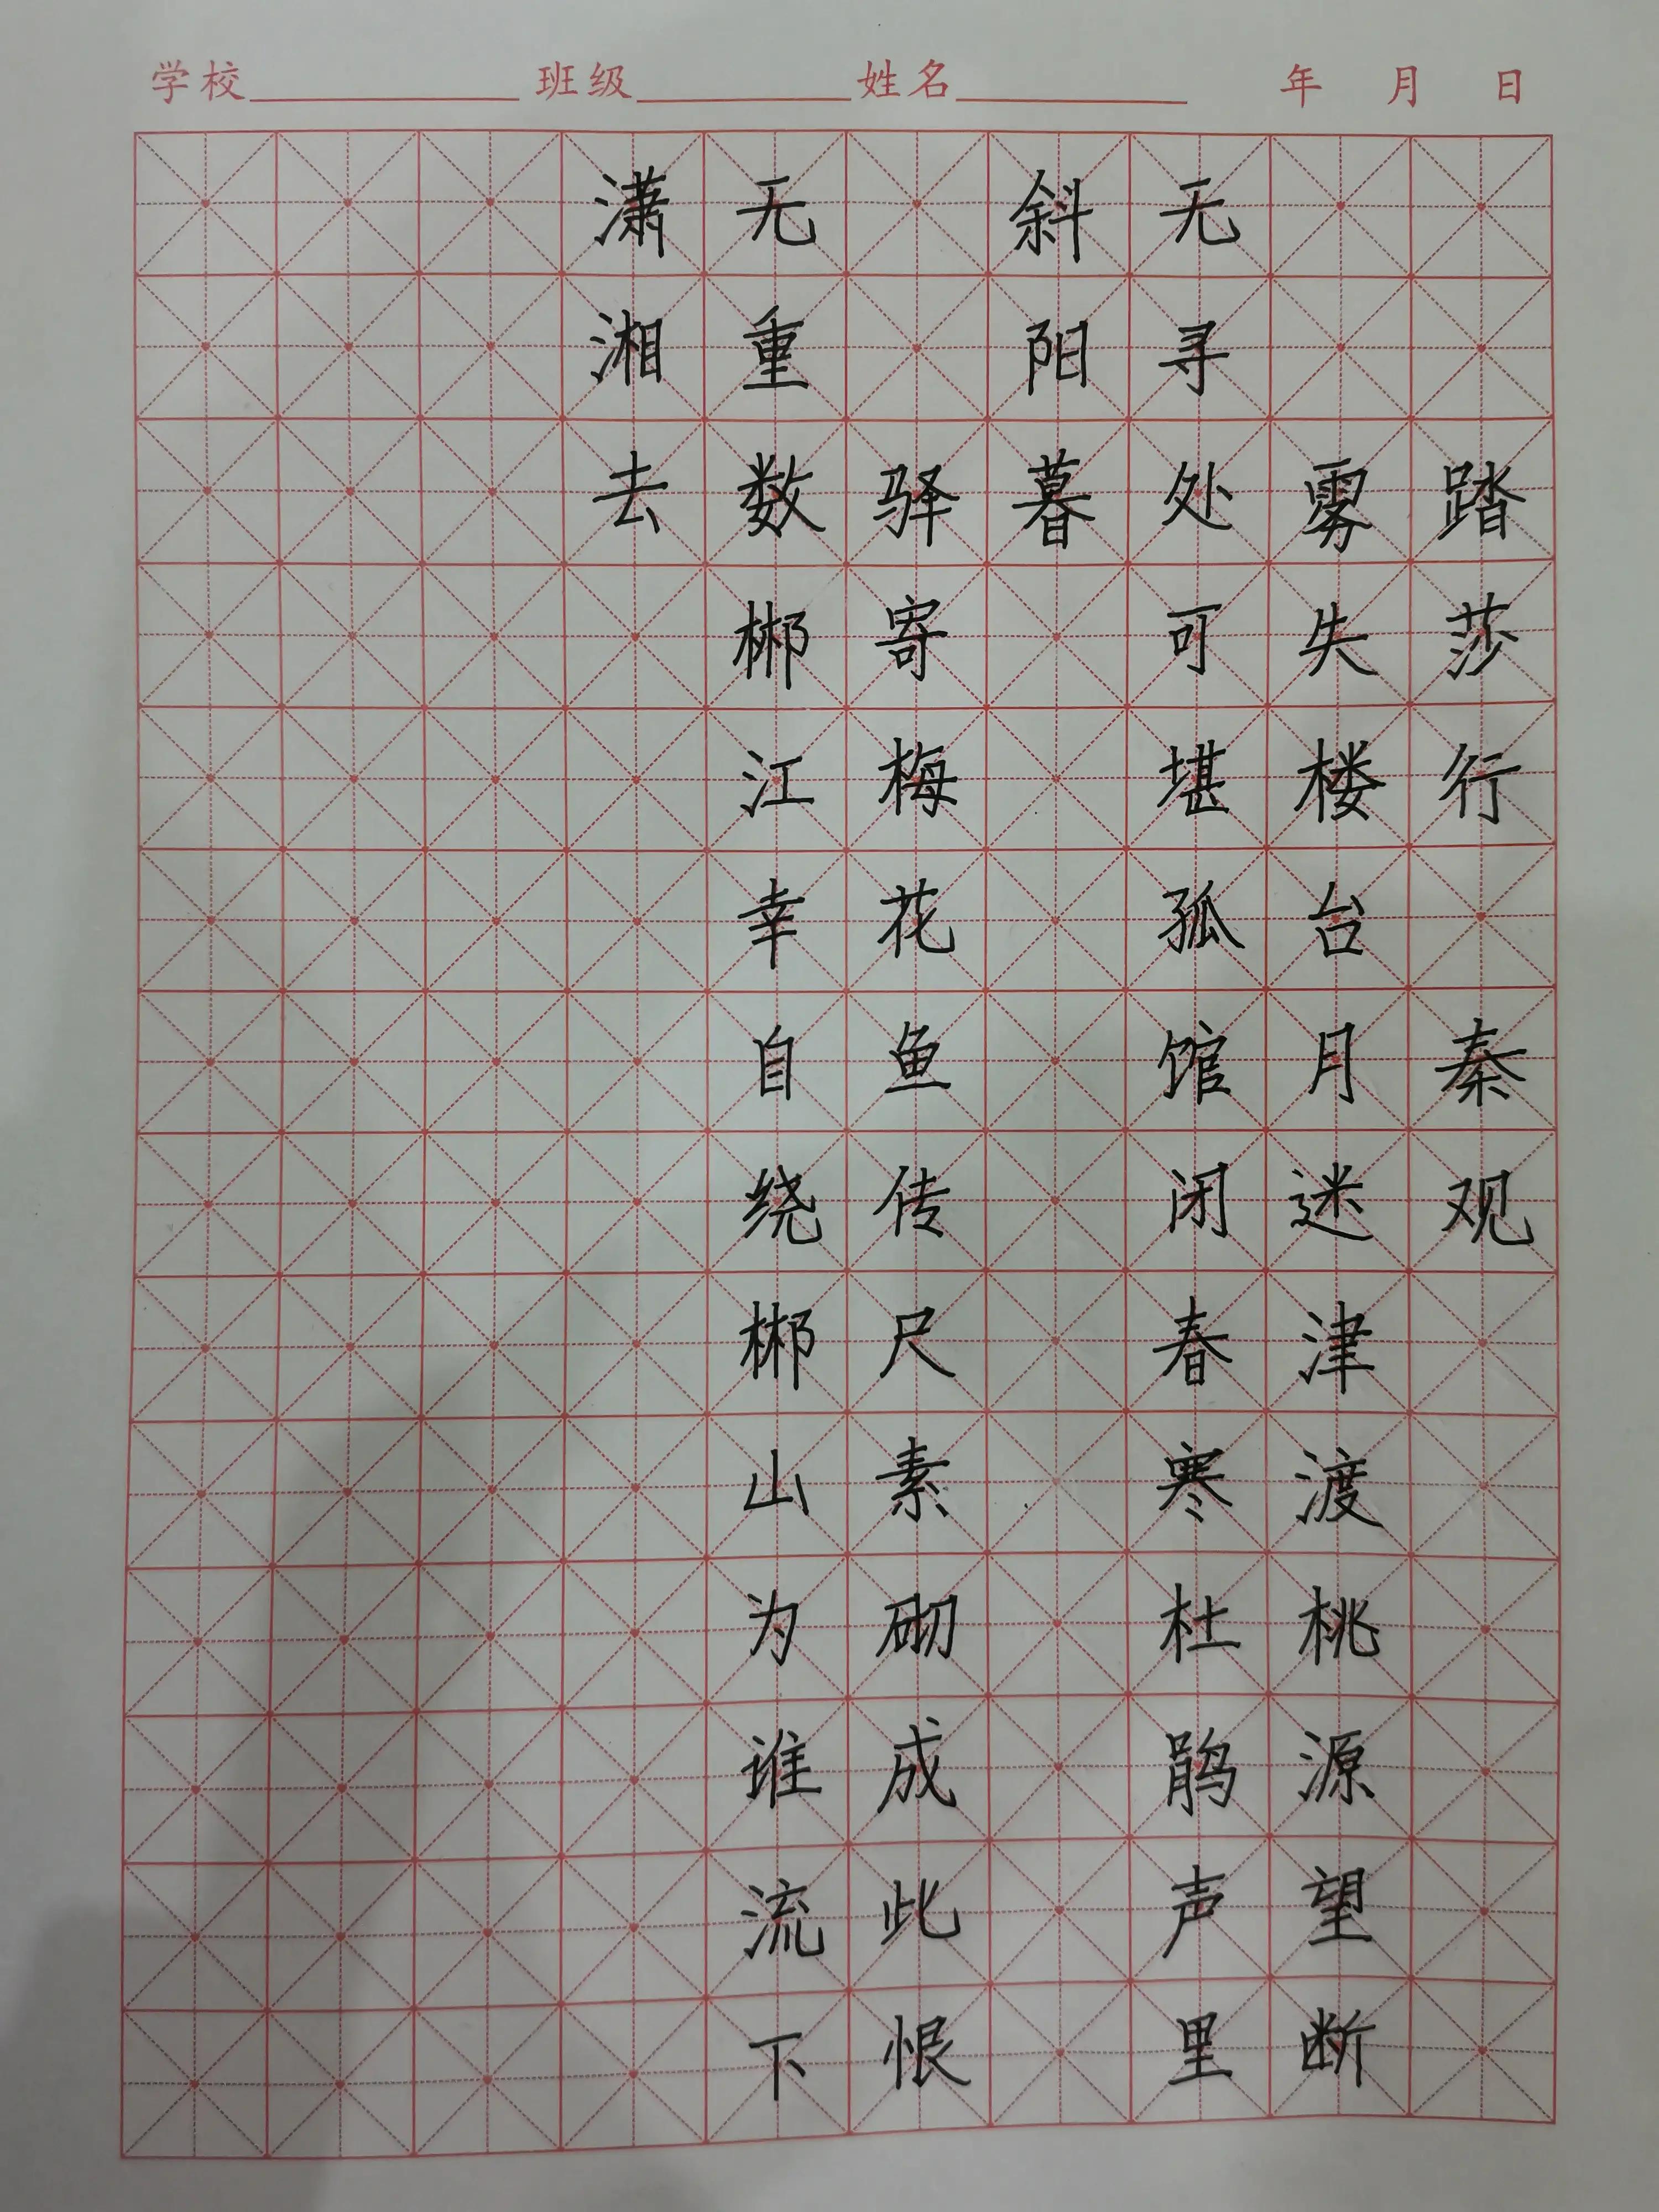 学校 班级 姓名 年 月 日
踏莎行 秦观
雾失楼台月迷津渡桃源望断
无寻处可堪孤馆闭春寒杜鹃声里
斜阳暮
驿寄梅花鱼传尺素砌成此恨
无重数郴江幸自绕郴山为谁流下
潇湘去